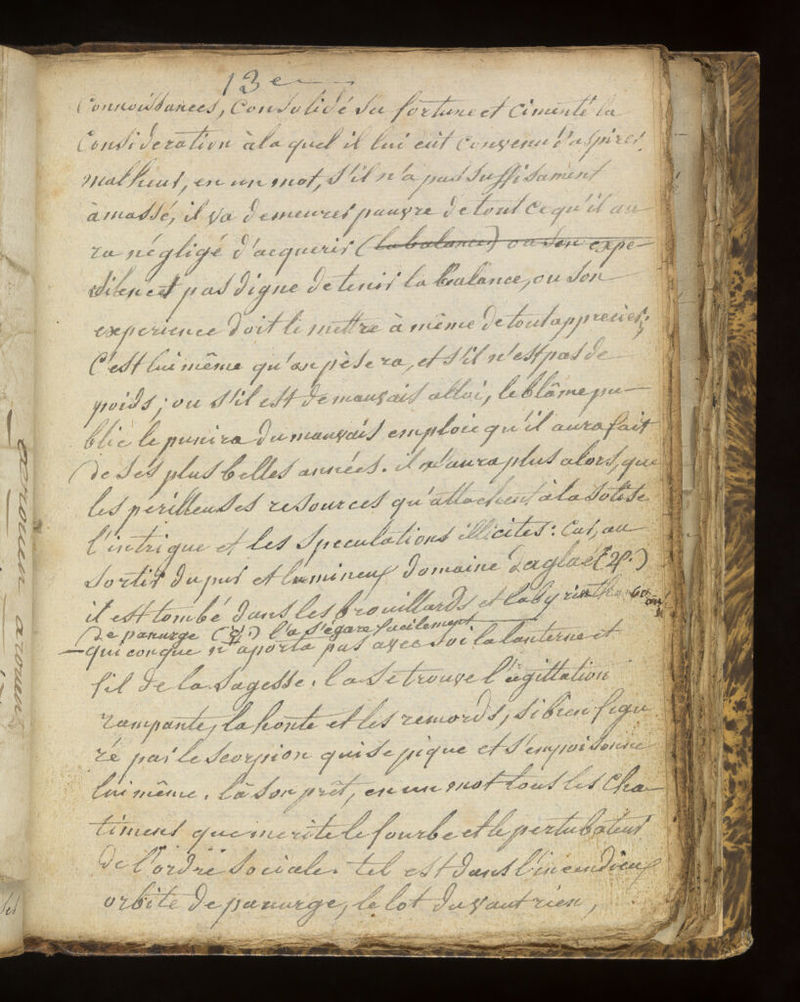 13e
Connoissances, Consolidé sa fortune et cimenté la
Consideration à la quel il lui eût convenu d'aspirer.
malheur, en un mot, s'il n'a pas suffisament
àmassé, il va demeurer pauvre de tout ce qu'il au
ra négligé d'acquerir (la balance) ou son expe-
pas digne de tenir la balance, ou son
experience doit le mettre à même de tout apprecier;
C'est lui même qu'on pèsera, et s'il n'est pas de
poids; ou s'il est de mauvais alloi, le blâme pu-
blic le punira du mauvais emploie qu'il aura fait
de ses plus belles années. il n'aura plus alors, que
les perilleuses resources qu'attachent à la sotise
l'intrigue et les speculations illicites: Car, au
sortir du pur et lumineux domaine d'aglaé (2º.)
il est tombé dans les brouillards et labyrinthe
De panurge l'a s'égare facilement
quiconque n'aporta pas avec soi la lanterne et
fil de la sagesse. la se trouve l'agittation
rampante, la honte et les remords, si bien figu
ré par le scorpion qui se pique et s'empoisonne
lui même. là son prêt, en un mot tous les cha
timens que merite le fourbe et le pertubateur
de l'ordre sociale. tel est dans l'incendieux
orbite de panurge, le lot du vautrien,